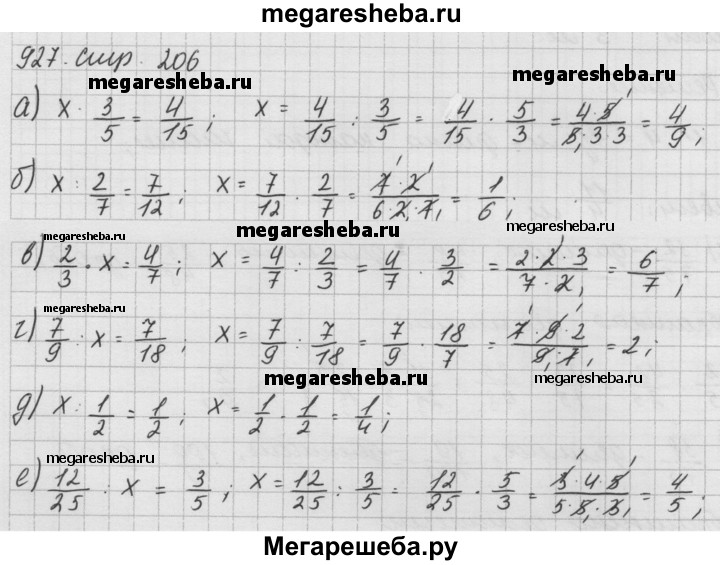 megaresheba.ru
927. стр. 206
megaresheba.ru megaresheba.ru
а) x · 3/5 = 4/15; x = 4/15 : 3/5 = 4/15 · 5/3 = 4·5/5·3·3 = 4/9;
б) x : 2/7 = 7/12; x = 7/12 · 2/7 = 7·2/6·2·7 = 1/6;
megaresheba.ru megaresheba.ru
в) 2/3 · x = 4/7; x = 4/7 : 2/3 = 4/7 · 3/2 = 2·2·3/7·2 = 6/7;
megaresheba.ru megaresheba.ru
г) 7/9 : x = 7/18; x = 7/9 : 7/18 = 7/9 · 18/7 = 7·9·2/9·7 = 2;
megaresheba.ru megaresheba.ru
д) x : 1/2 = 1/2; x = 1/2 · 1/2 = 1/4;
megaresheba.ru
е) 12/25 : x = 3/5; x = 12/25 : 3/5 = 12/25 · 5/3 = 3·4·5/5·5·3 = 4/5;
Мегарешеба.ру